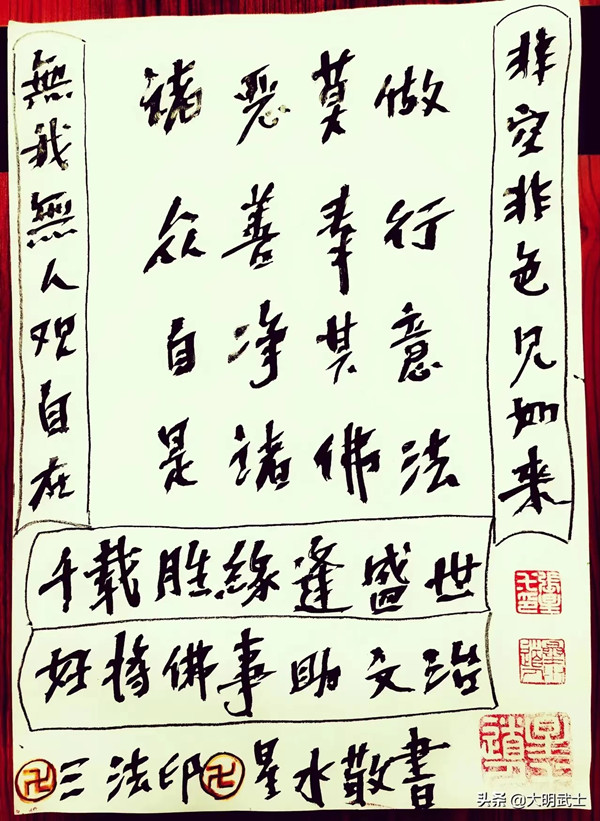 無我無人观自在
非空非色見如来
諸惡莫做
众善奉行
自净其意
是諸佛法
千载胜緣逢盛世
好将佛事助文治
卍三法印卍星水敬書
头条 @大明武士